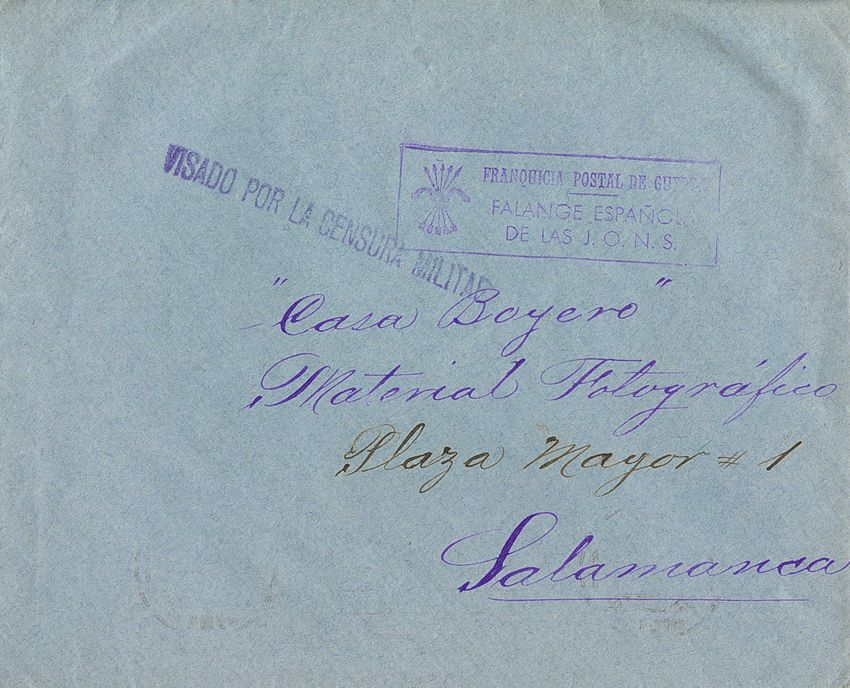 VISADO POR LA CENSURA MILITAR
FRANQUICIA POSTAL DE GUERRA
FALANGE ESPAÑOLA
DE LAS J. O. N. S.
"Casa Boyero"
Material Fotográfico
Plaza Mayor # 1
Salamanca